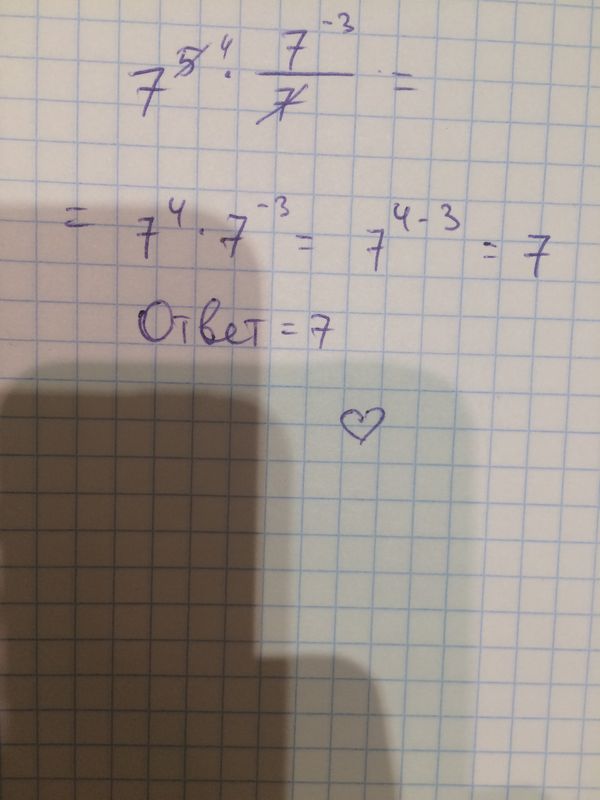 7^5 4 · 7^-3 / 7 =
= 7^4 · 7^-3 = 7^4-3 = 7
Ответ = 7